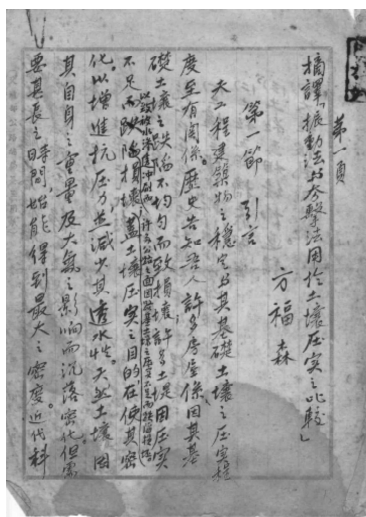 第一頁
摘譯「振動法與夯擊法用於土壤压实之比較」
方福森
第一節 引言
夫工程建築物之穩定與其基礎土壤之压实程
度至有関係。歷史告知吾人許多房屋係因其基
礎土壤之跌陷不均匀而致損壞許多土堤因压实
不足而跌陷損壞蓋土壤压实之目的在使其密
化以增進抗压力並減少其透水性。天然土壤因
其自身之重量及大氣之影响而沉落密化但需
要甚長之時間，始能得到最大之密度。近代科